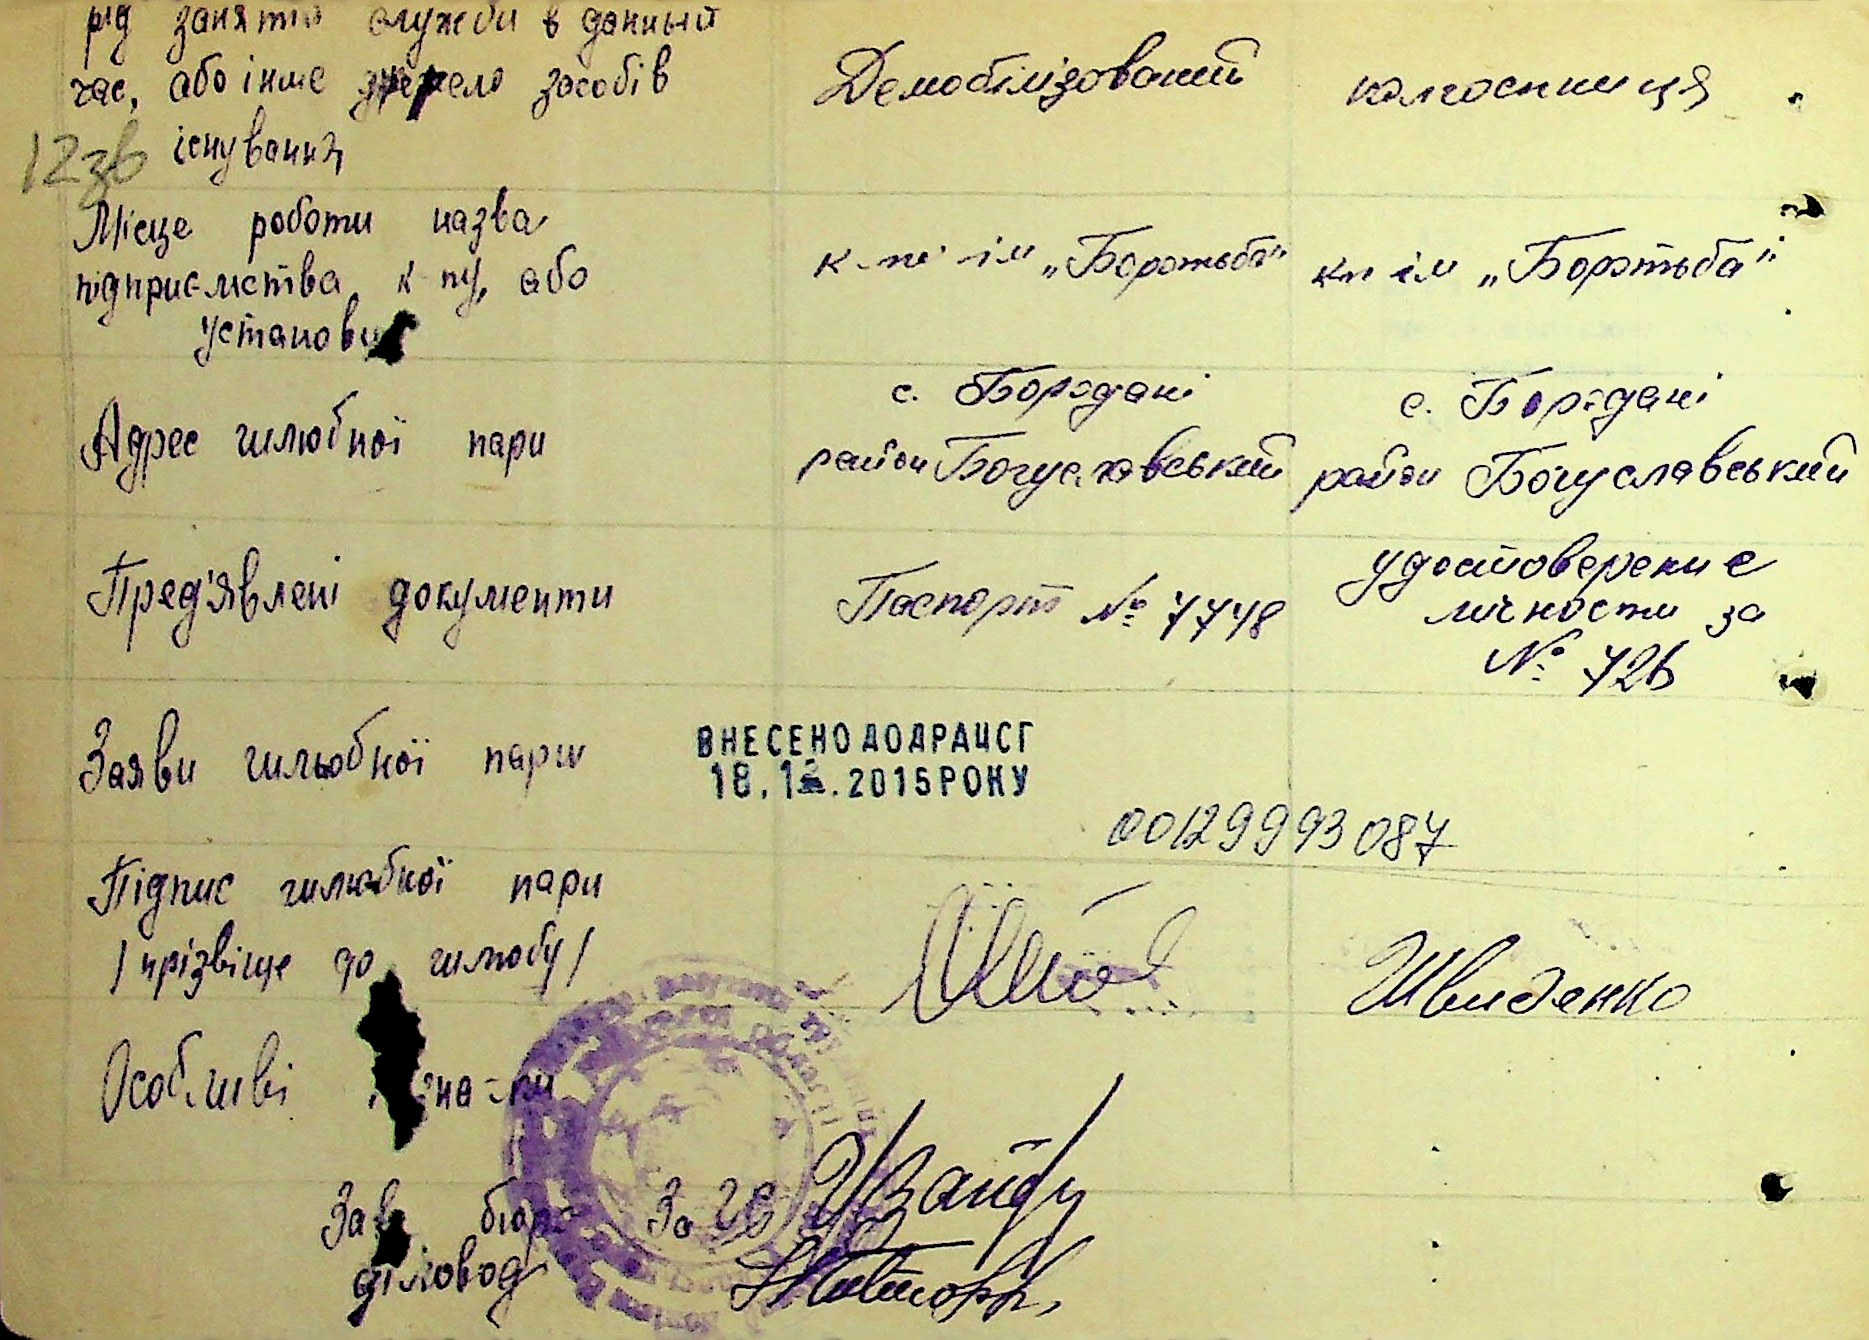 рід заняття служби в данный
час, або інше джерело засобів
існування
Демобілізований
колгоспниця
12зв
Місце роботи назва
підприємства к-пу, або
установи
к-пі ім „Боротьба"
кп ім „Боротьба"
Адрес шлюбної пари
с. Бородані
район Богуславський
с. Бородані
район Богуславський
Пред'явлені документи
Паспорт № 7748
удостоверение
личности за
№ 726
Заяви шлюбної пари
ВНЕСЕНО ДО ДРАЦСГ
18.12.2015 РОКУ
00129993087
Підпис шлюбної пари
/прізвіще до шлюбу/
Швиденко
Особливі
Зав бюро
діловод